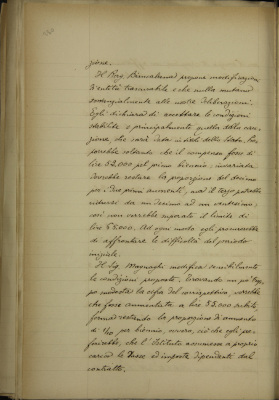 zione.
Il Rag. Biancalana propone modificazioni
d'entità trascurabile e che nulla mutano
sostanzialmente alle nostre deliberazioni.
Egli dichiara di accettare le condizioni
stabilite e principalmente quella della cau-
zione, che sarà data in
vorrebbe soltanto che il compenso fosse di
lire 52.000 pel primo biennio, invariata
dovrebbe restare la proporzione del decimo
per i due primi aumenti, ma il terzo potrebbe
ridursi da un decimo ad un ventesimo;
così non verrebbe superato il limite di
lire 58.000. Ad ogni modo egli
di affrontare le difficoltà del periodo
iniziale.
Il Sig. Magnaghi modifica sensibilmente
le condizioni proposte. Trovando un po' trop-
po modesta la cifra del corrispettivo, vorrebbe
che fosse aumentata a lire 55.000 subito,
ferma restando la proporzione d'aumento
di 1/10 per biennio, ovvero, ciò che egli pre-
ferirebbe, che l'Istituto assumesse a proprio
carico le tasse ed imposte dipendenti dal
contratto.